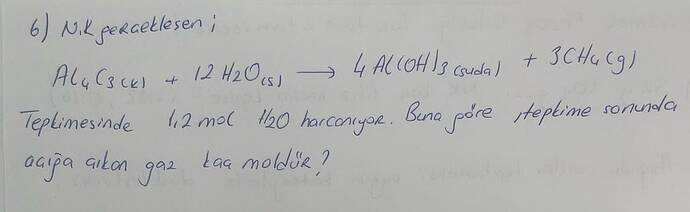 6) N.K gerçekleşen ;
Al4C3(k) + 12H2O(s) → 4Al(OH)3(suda) + 3CH4(g)
Tepkimesinde 1,2 mol H2O harcanıyor. Buna göre , tepkime sonunda
açığa çıkan gaz kaç moldür?